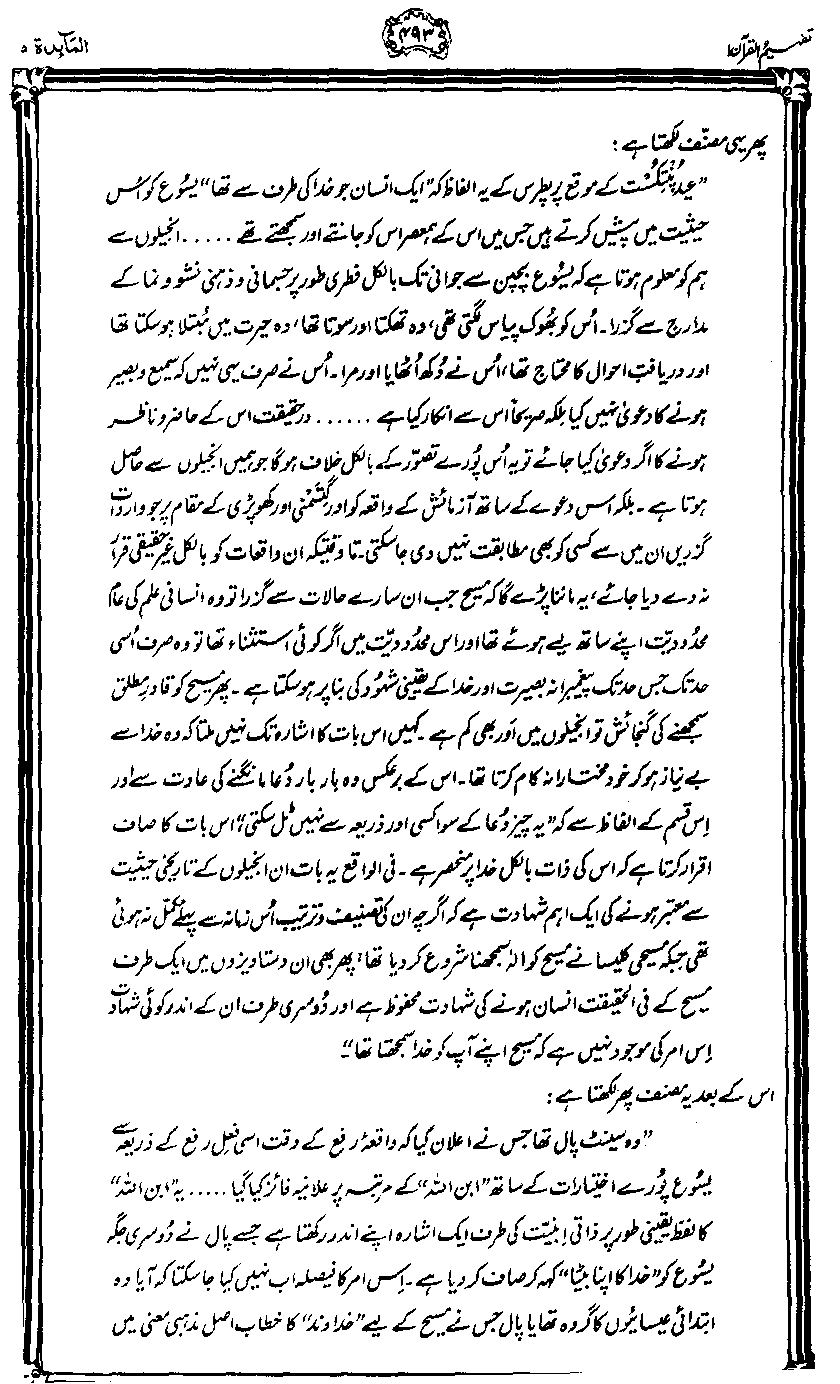 تفہیم القرآن ۱
۴۹۳
المآئدۃ ۵
پھر یہی مصنف لکھتا ہے :
”عیدِ پنتِکُست کے موقع پر پطرس کے یہ الفاظ کہ ”ایک انسان جو خدا کی طرف سے تھا“ یسُوع کو اُس
حیثیت میں پیش کرتے ہیں جس میں اس کے ہمعصر اس کو جانتے اور سمجھتے تھے ..... انجیلوں سے
ہم کو معلوم ہوتا ہے کہ یسُوع بچپن سے جوانی تک بالکل فطری طور پر جسمانی و ذہنی نشو و نما کے
مدارج سے گزرا۔ اُس کو بھُوک پیاس لگتی تھی، وہ تھکتا اور سوتا تھا، وہ حیرت میں مُبتلا ہو سکتا تھا
اور دریافتِ احوال کا محتاج تھا، اُس نے دُکھ اُٹھایا اور مرا۔ اُس نے صرف یہی نہیں کہ سمیع و بصیر
ہونے کا دعویٰ نہیں کیا بلکہ صریحاً اس سے انکار کیا ہے ...... درحقیقت اس کے حاضر و ناظر
ہونے کا اگر دعویٰ کیا جائے تو یہ اُس پُورے تصوّر کے بالکل خلاف ہوگا جو ہمیں انجیلوں سے حاصل
ہوتا ہے۔ بلکہ اس دعوے کے ساتھ آزمائش کے واقعہ کو اور گتسمنی اور کھوپڑی کے مقام پر جو واردات
گزریں ان میں سے کسی کو بھی مطابقت نہیں دی جا سکتی۔ تا وقتیکہ ان واقعات کو بالکل غیر حقیقی قرار
نہ دے دیا جائے، یہ ماننا پڑے گا کہ مسیح جب ان سارے حالات سے گزرا تو وہ انسانی علم کی عام
محدُودیّت اپنے ساتھ لیے ہوئے تھا اور اس محدُودیّت میں اگر کوئی استثناء تھا تو وہ صرف اُسی
حد تک جس حد تک پیغمبرانہ بصیرت اور خدا کے یقینی شہُود کی بنا پر ہو سکتا ہے۔ پھر مسیح کو قادرِ مطلق
سمجھنے کی گنجائش تو انجیلوں میں اَور بھی کم ہے۔ کہیں اس بات کا اشارہ تک نہیں ملتا کہ وہ خدا سے
بے نیاز ہو کر خود مختارانہ کام کرتا تھا۔ اس کے برعکس وہ بار بار دُعا مانگنے کی عادت سے اور
اِس قسم کے الفاظ سے کہ ”یہ چیز دُعا کے سوا کسی اور ذریعہ سے نہیں ٹل سکتی“ اس بات کا صاف
اقرار کرتا ہے کہ اس کی ذات بالکل خدا پر منحصر ہے۔ فی الواقع یہ بات ان انجیلوں کے تاریخی حیثیت
سے معتبر ہونے کی ایک اہم شہادت ہے کہ اگرچہ ان کی تصنیف و ترتیب اُس زمانہ سے پہلے مکمل نہ ہوئی
تھی جبکہ مسیحی کلیسا نے مسیح کو الٰہ سمجھنا شروع کر دیا تھا، پھر بھی ان دستاویزوں میں ایک طرف
مسیح کے فی الحقیقت انسان ہونے کی شہادت محفوظ ہے اور دُوسری طرف ان کے اندر کوئی شہادت
اِس امر کی موجود نہیں ہے کہ مسیح اپنے آپ کو خدا سمجھتا تھا“۔
اس کے بعد یہ مصنف پھر لکھتا ہے :
”وہ سینٹ پال تھا جس نے اعلان کیا کہ واقعۂ رفع کے وقت اسی فعلِ رفع کے ذریعہ سے
یسُوع پُورے اختیارات کے ساتھ ”ابن اللہ“ کے مرتبہ پر علانیہ فائز کیا گیا ..... یہ ”ابن اللہ“
کا لفظ یقینی طور پر ذاتی اِبنیّت کی طرف ایک اشارہ اپنے اندر رکھتا ہے جسے پال نے دُوسری جگہ
یسُوع کو ”خدا کا اپنا بیٹا“ کہہ کر صاف کر دیا ہے۔ اِس امر کا فیصلہ اب نہیں کیا جا سکتا کہ آیا وہ
ابتدائی عیسائیوں کا گروہ تھا یا پال جس نے مسیح کے لیے ”خداوند“ کا خطاب اصل مذہبی معنی میں